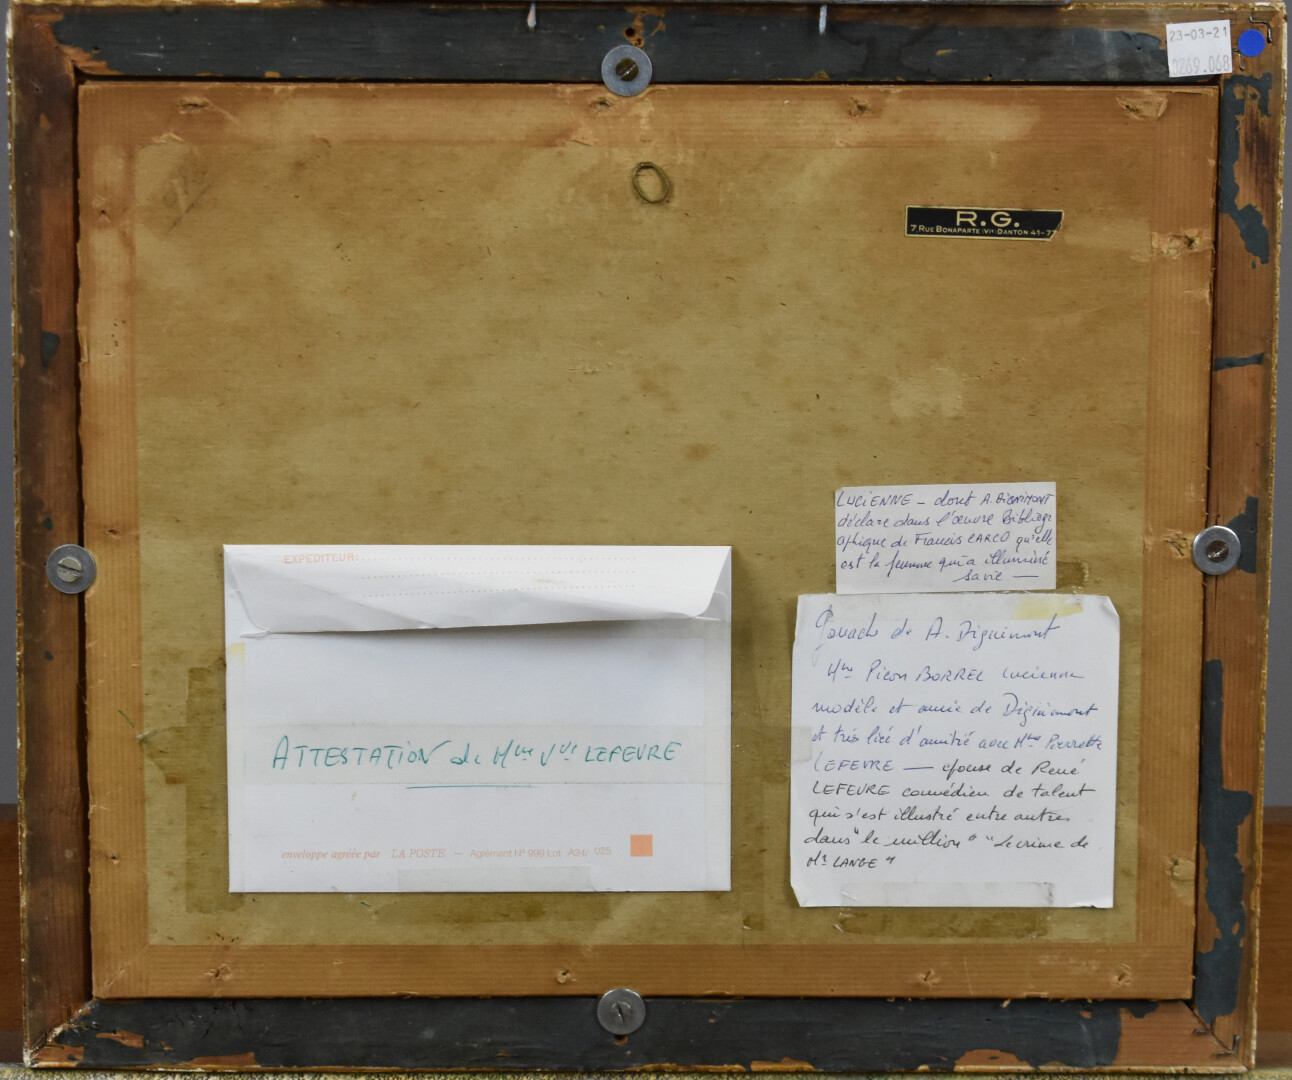 23-03-21
0269.068
R.G.
7, RUE BONAPARTE (VIe) DANTON 41-77
LUCIENNE - dont A. DIGNIMONT
déclare dans l'œuvre Bibliogr
aphique de Francis CARCO qu'elle
est la femme qui a illuminé
sa vie —
EXPEDITEUR:
ATTESTATION de Mme Vve LEFEVRE
enveloppe agréée par LA POSTE — Agrément N° 999 Lot A24/ 025
Gouache de A. Dignimont
Mme Picon BORREL Lucienne
modèle et amie de Dignimont
et très liée d'amitié avec Mme Pierrette
LEFEVRE — épouse de René
LEFEVRE comédien de talent
qui s'est illustré entre autres
dans "le million" "Le crime de
Mr LANGE"